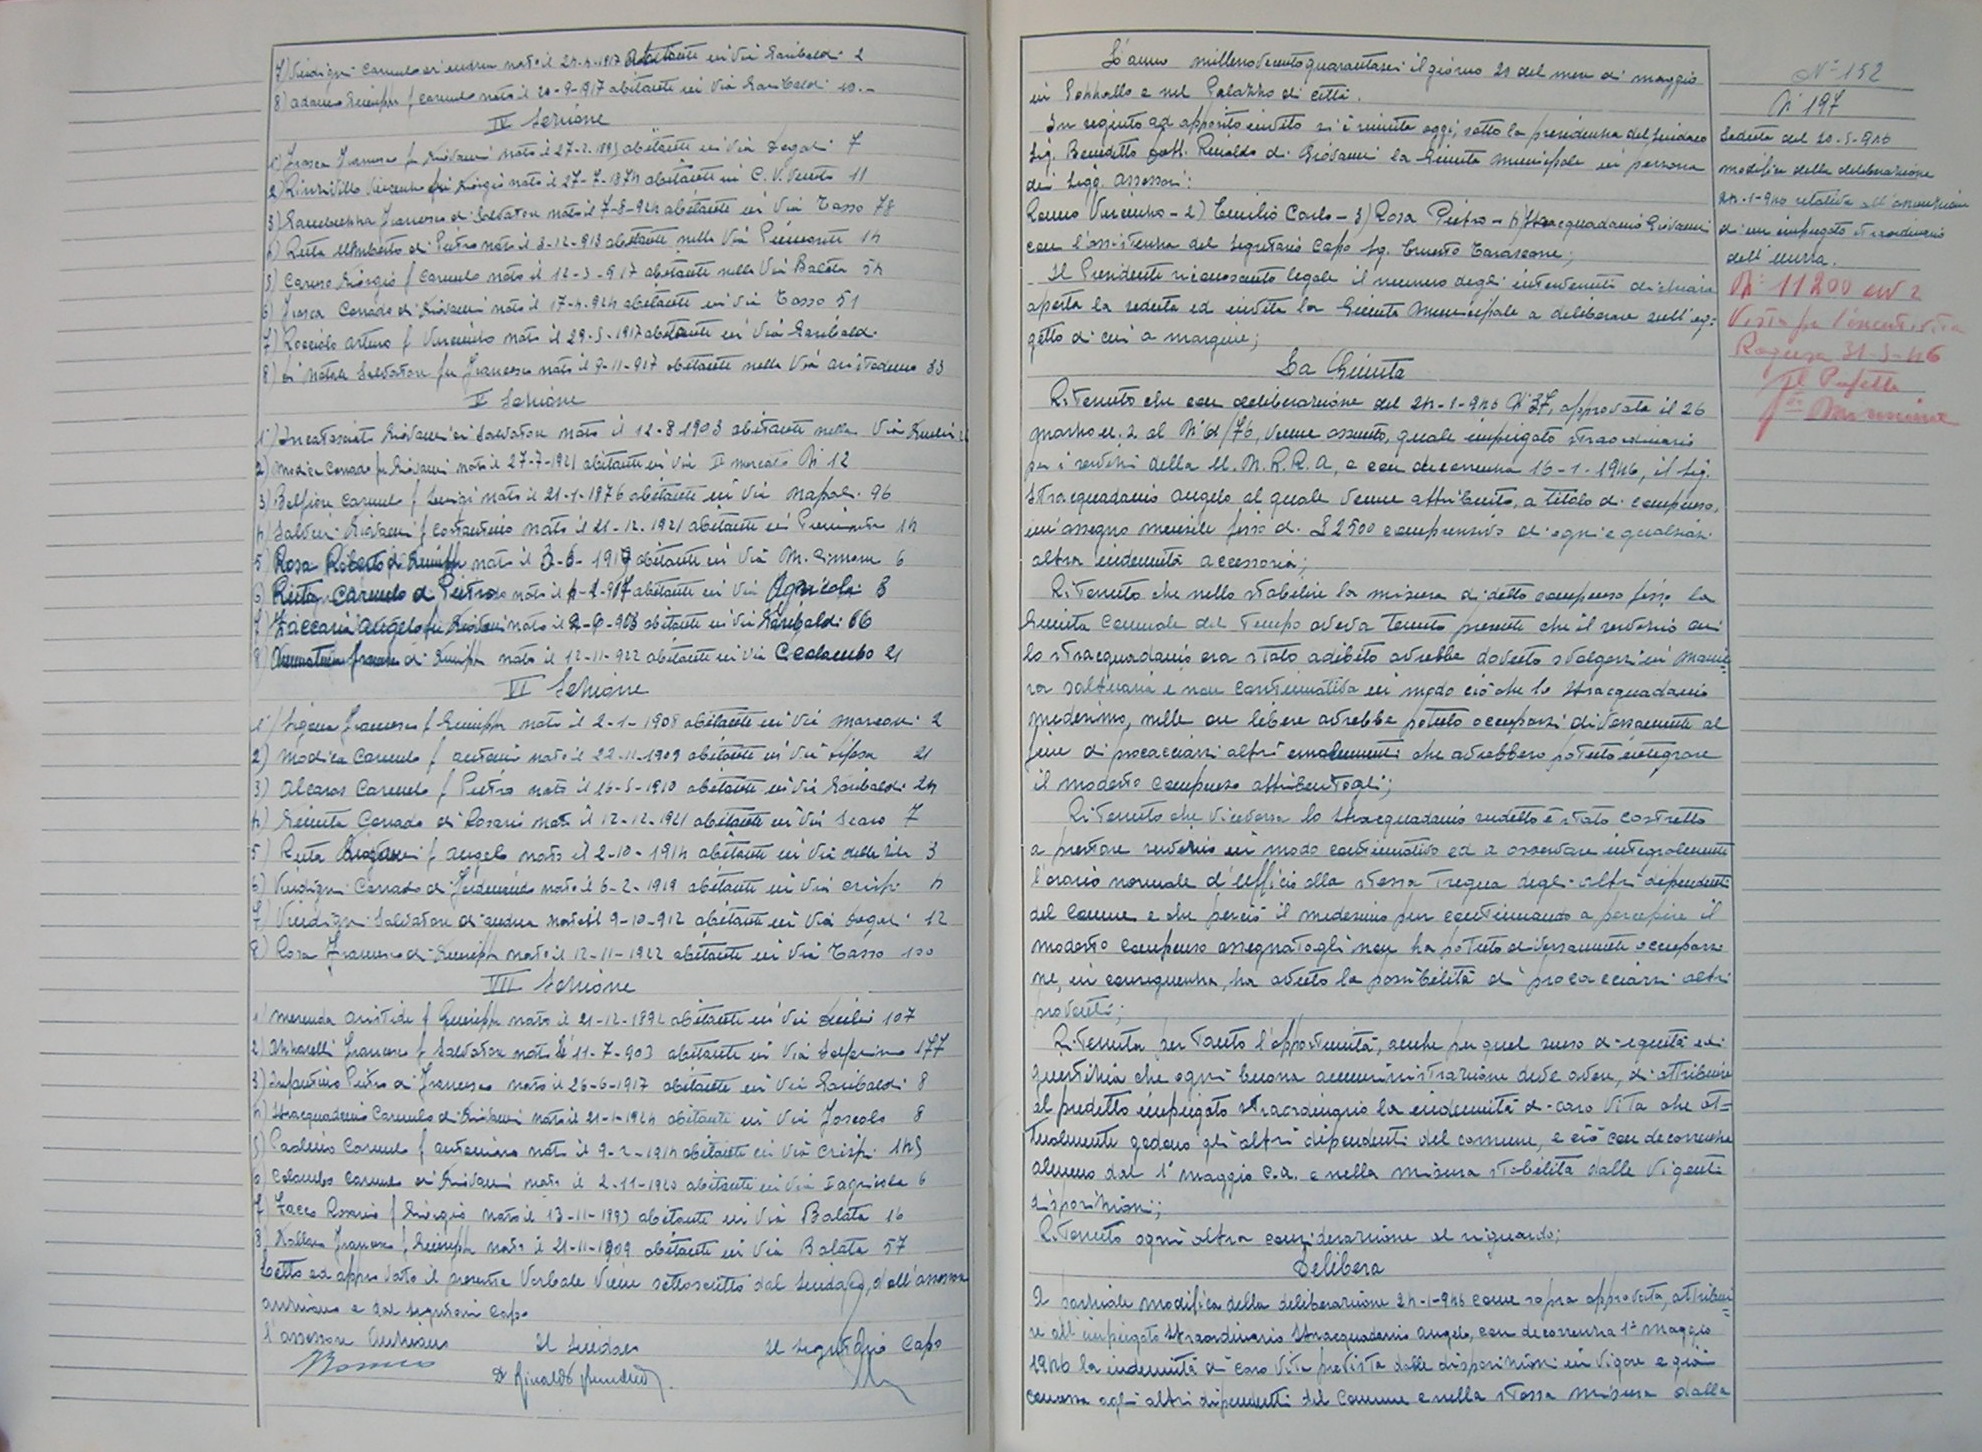 7) Vindigni Carmelo di Andrea nato il 24-4-1917 abitante in Via Garibaldi 2
8) Adamo Giuseppe f Carmelo nato il 20-9-917 abitante in Via Garibaldi 10.-
IV Sezione
1) Frasca Francesco fu Giovanni nato il 27-2-1893 abitante in Via Segali 7
2) Vincenzo fu Giorgio nato il 27-7-1874 abitante in C. V. Veneto 11
3) Francesco di Salvatore nato il 7-8-924 abitante in Via Tasso 78
4) Ruta Umberto di Pietro nato il 3-12-913 abitante nella Via Piemonte 14
5) Caruso Giorgio f Carmelo nato il 12-3-917 abitante nella Via Balata 54
6) Frasca Corrado di Giovanni nato il 17-4-924 abitante in Via Tasso 51
7) Arturo f Vincenzo nato il 29-5-1917 abitante in Via Garibaldi
8) Di Natale Salvatore fu Francesco nato il 9-11-917 abitante nella Via Aristodemo 33
V Sezione
1) Giovanni di Salvatore nato il 12-8-1903 abitante nella Via
2) Modica Corrado fu Giovanni nato il 27-7-1921 abitante in Via I° mercato N. 12
3) Belfiore Carmelo f Luigi nato il 21-1-1876 abitante in Via Napoli 96
4) Giovanni f Costantino nato il 21-12-1921 abitante in Piemonte 14
5) Rosa Roberto di Giuseppe nato il 3-6-1919 abitante in Via M. Simone 6
6) Ruta Carmelo di Pietro nato il 4-2-917 abitante in Via Agricola 3
7) Zaccaria Angelo fu Giovanni nato il 2-9-903 abitante in Via Garibaldi 66
8) di Giuseppe nato il 12-11-922 abitante in Via C Colombo 21
VI Sezione
1) Francesco f Giuseppe nato il 2-1-1908 abitante in Via Marconi 2
2) Modica Carmelo f Antonio nato il 22-11-1909 abitante in Via Lissa 21
3) Carmelo f Pietro nato il 16-5-1910 abitante in Via Garibaldi 24
4) Giunta Corrado di Rosario nato il 12-12-1921 abitante in Via 7
5) Ruta Giovanni f Angelo nato il 2-10-1914 abitante in Via delle 3
6) Vindigni Corrado di nato il 6-2-1919 abitante in Via Crispi 4
7) Vindigni Salvatore di Andrea nato il 9-10-912 abitante in Via Segali 12
8) Rosa Francesco di Giuseppe nato il 12-11-1922 abitante in Via Tasso 100
VII Sezione
1) Merenda Aristide f Giuseppe nato il 21-12-1892 abitante in Via Sicilia 107
2) Azzarelli Francesco f Salvatore nato il 11-7-903 abitante in Via Solferino 177
3) Infantino Pietro di Francesco nato il 26-6-1917 abitante in Via Garibaldi 8
4) Stracquadanio Carmelo di Giovanni nato il 21-1-1924 abitante in Via Foscolo 8
5) Paolino Carmelo f Antonino nato il 9-2-1914 abitante in Via Crispi 145
6) Colombo Carmelo di Giovanni nato il 2-11-1920 abitante in Via 6
7) Zacco Rosario f Giorgio nato il 13-11-1893 abitante in Via Balata 16
8) Francesco f Giuseppe nato il 21-11-1909 abitante in Via Balata 57
Letto ed approvato il presente Verbale viene sottoscritto dal Sindaco, dall'assessore
anziano e dal segretario Capo
L'assessore Anziano Il Sindaco Il segretario Capo
L'anno millenovecentoquarantasei il giorno 21 del mese di maggio
in Pozzallo e nel Palazzo di città.
In seguito ad apposito invito si è riunita oggi, sotto la presidenza del Sindaco
Sig. Benedetto dott. Rinaldo di Giovanni la Giunta Municipale in persona
dei Sigg. Assessori:
Romeo Vincenzo - 2) Emilio Carlo - 3) Rosa Pietro - 4) Stracquadanio Giovanni
con l'assistenza del Segretario Capo Sig. Ernesto Tarascone;
Il Presidente riconosciuto legale il numero degli intervenuti dichiara
aperta la seduta ed invita la Giunta Municipale a deliberare sull'og-
getto di cui a margine;
La Giunta
Ritenuto che con deliberazione del 24-1-946 N° 37, approvata il 26
marzo u.s. al N. d/76, venne assunto, quale impiegato straordinario
per i servizi della U.N.R.R.A, e con decorrenza 16-1-1946, il Sig.
Stracquadanio Angelo al quale venne attribuito, a titolo di compenso,
un'assegno mensile fisso di £ 2500 comprensivo di ogni e qualsiasi
altra indennità accessoria;
Ritenuto che nello stabilire la misura di detto compenso fisso la
Giunta Comunale del tempo aveva tenuto presente che il servizio cui
lo Stracquadanio era stato adibito avrebbe dovuto svolgersi in manie-
ra saltuaria e non continuativa in modo ciò che lo Stracquadanio
medesimo, nelle ore libere avrebbe potuto occuparsi diversamente al
fine di procacciarsi altri emolumenti che avrebbero potuto integrare
il modesto compenso attribuitogli;
Ritenuto che viceversa lo Stracquadanio suddetto è stato costretto
a prestare servizio in modo continuativo ed a osservare integralmente
l'orario normale d'ufficio alla stessa tregua degli altri dipendenti
del Comune e che perciò il medesimo pur continuando a percepire il
modesto compenso assegnatogli non ha potuto diversamente occuparsi
ne, in conseguenza, ha avuto la possibilità di procacciarsi altri
proventi;
Ritenuta pertanto l'opportunità, anche per quel senso di equità e di
giustizia che ogni buona amministrazione deve avere, di attribuire
al predetto impiegato straordinario la indennità di caro vita che at-
tualmente godono gli altri dipendenti del comune, e ciò con decorrenza
almeno dal 1° maggio c.a. e nella misura stabilita dalle vigenti
disposizioni;
Ritenuto ogni altra considerazione al riguardo;
Delibera
A parziale modifica della deliberazione 24-1-946 come sopra approvata, attribui-
re all'impiegato straordinario Stracquadanio Angelo, con decorrenza 1° Maggio
1946 la indennità di caro vita prevista dalle disposizioni in vigore e già
concessa agli altri dipendenti del Comune e nella stessa misura dalla
N° 152
N° 197
Seduta del 20-5-946
modifica della deliberazione
24-1-946 relativa all'assunzione
di un impiegato straordinario
dell'unrra.
N. 11200 Div 2
Visto per l'esecutività
Ragusa 31-5-46
Il Prefetto